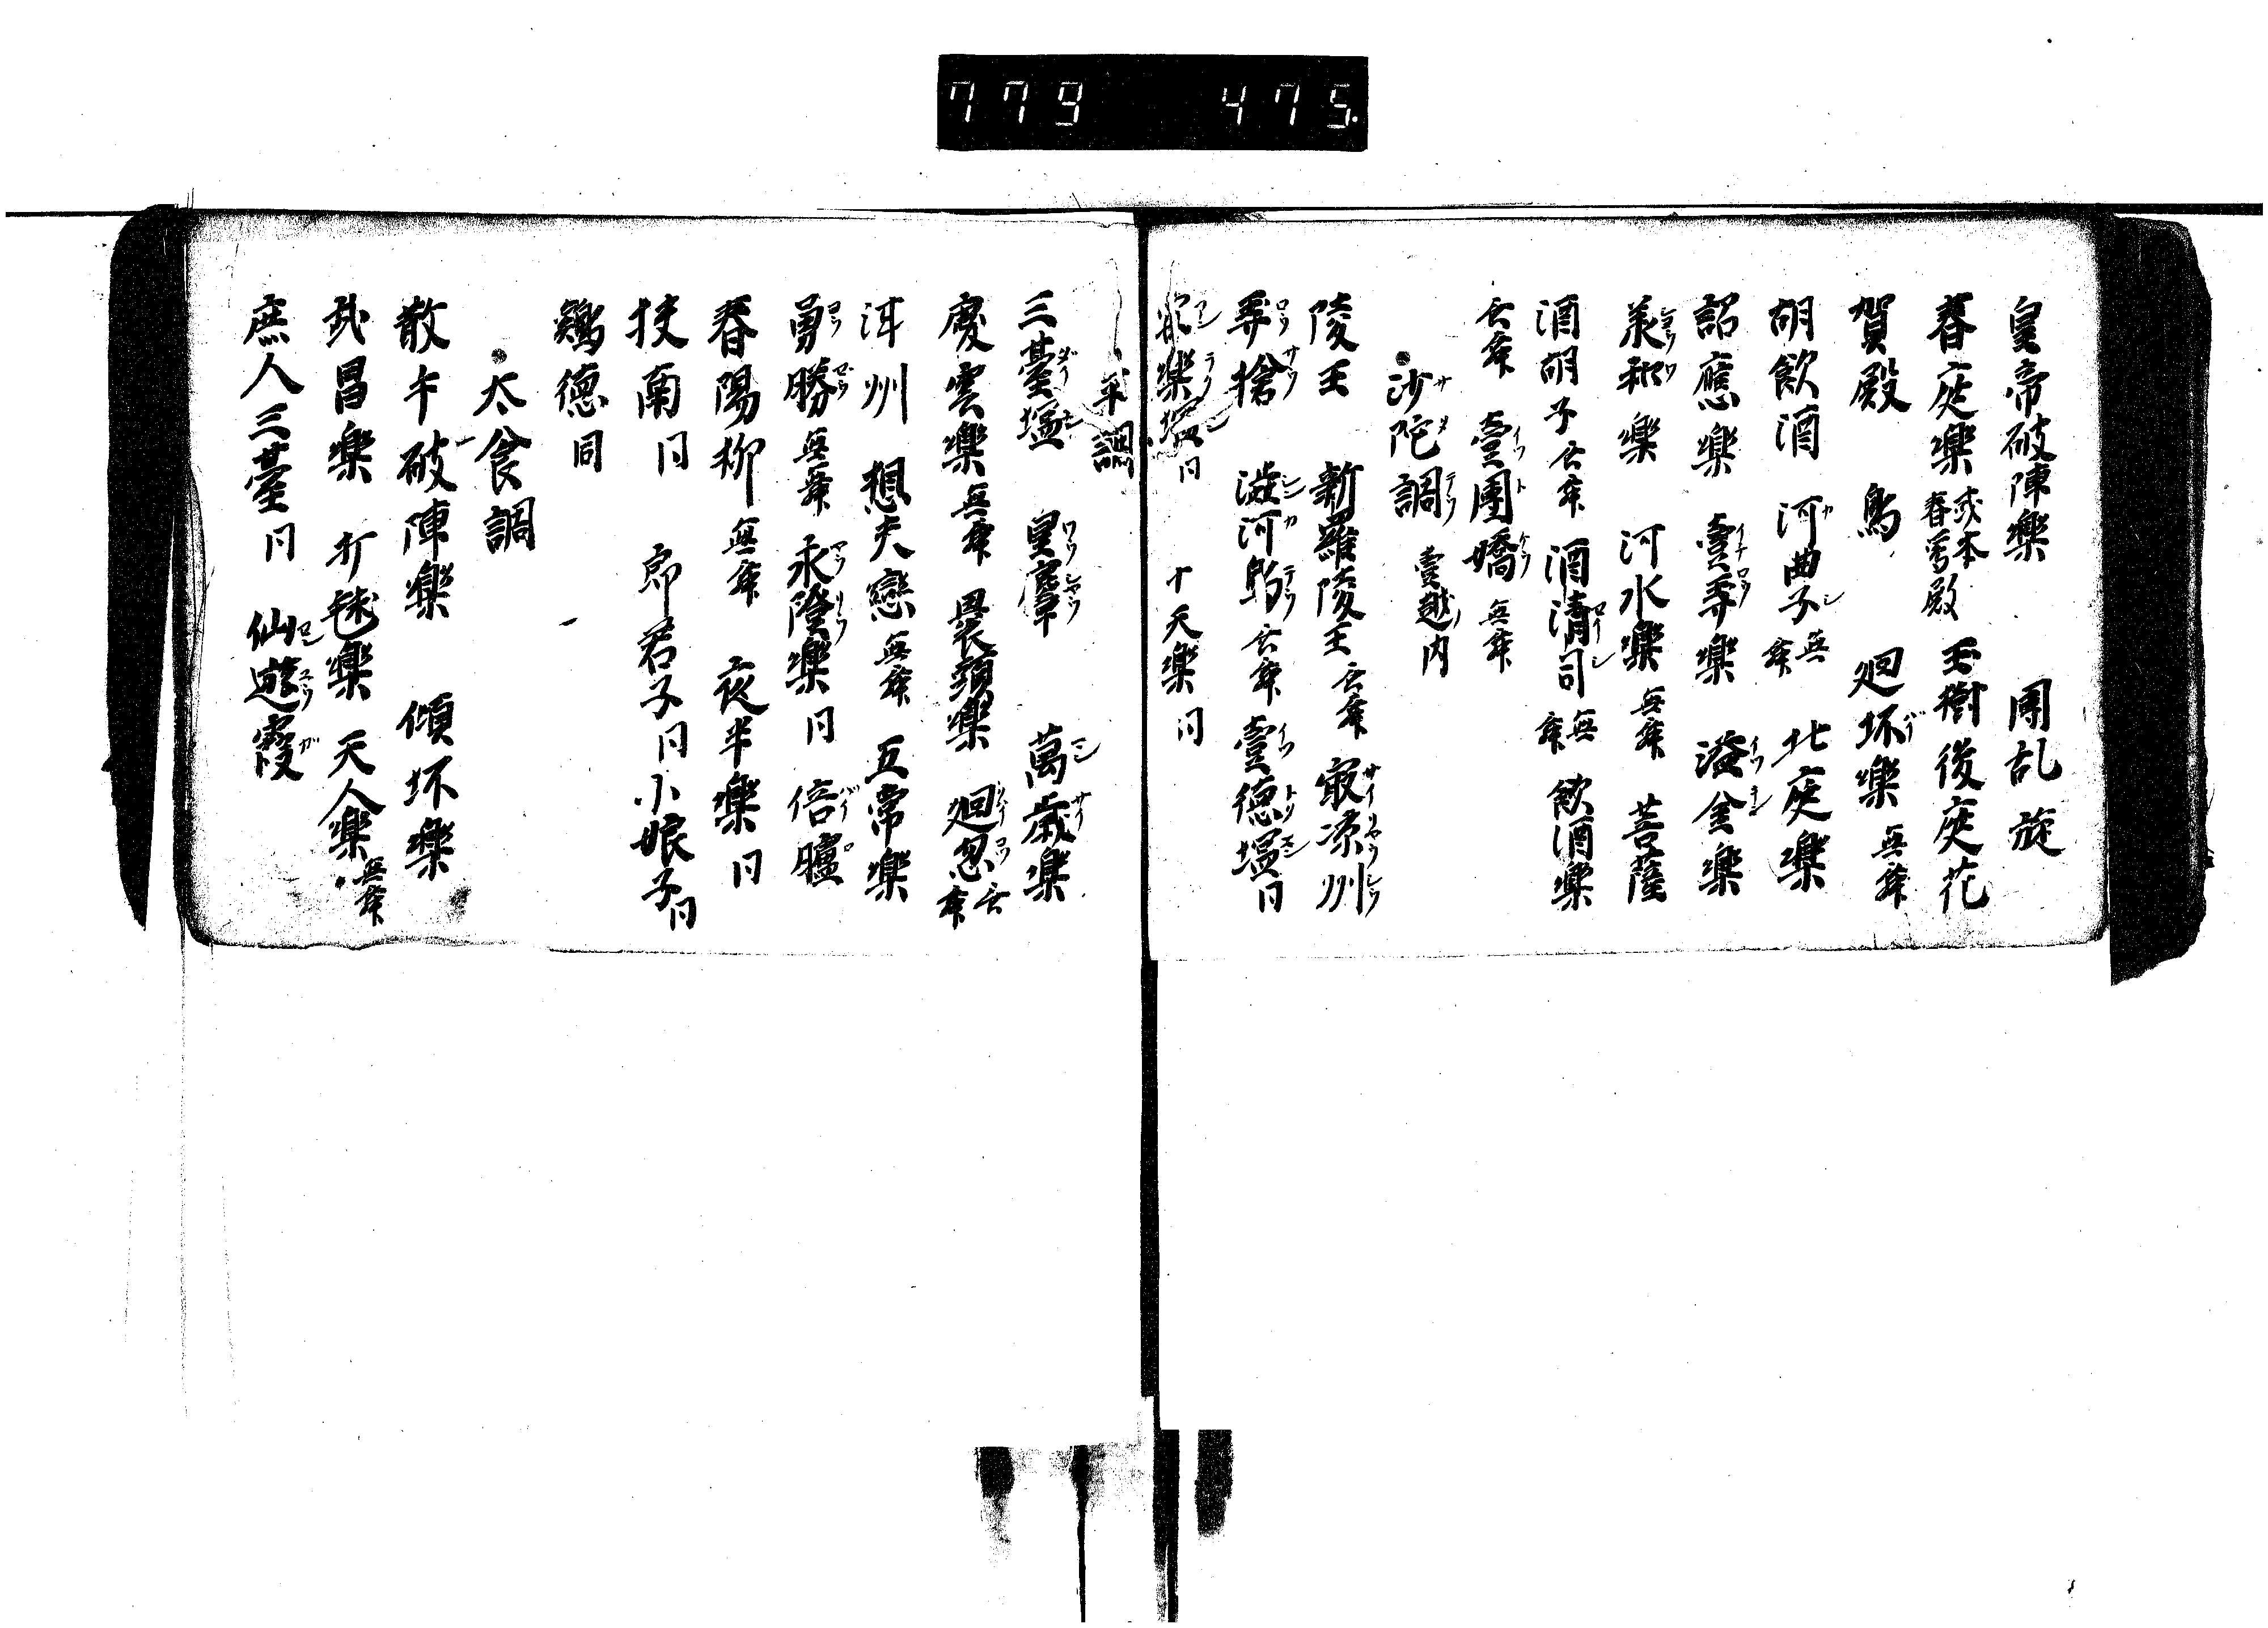 779 475
皇帝破陣樂 團乱旋
春庭樂 或本春鶯殿 玉樹後庭花
賀殿 鳥 廻坏樂 無舞
胡飲酒 河曲子 無舞 北庭樂
詔應樂 壹弄樂 溢金樂
羕和樂 河水樂 無舞 菩薩
酒胡子 无舞 酒清司 無舞 飲酒樂
无舞 壹團嬌 無舞
沙陀調 壹越内
陵王 新羅陵王 无舞 寂涼州
弄搶 澁河鳥 无舞 壹德塩 同
安樂塩 同 十天樂 同
平調
三臺塩 皇麞 萬歲樂
慶雲樂 無舞 褁頭樂 廻忽 无舞
洱州 想夫戀 無舞 五常樂
勇勝 無舞 永隆樂 同 倍臚
春陽柳 無舞 夜半樂 同
扶南 同 郎君子 同 小娘子 同
鶏德 同
太食調
散手破陣樂 傾坏樂
武昌樂 打毬樂 天人樂 無舞
庶人三臺 同 仙遊霞